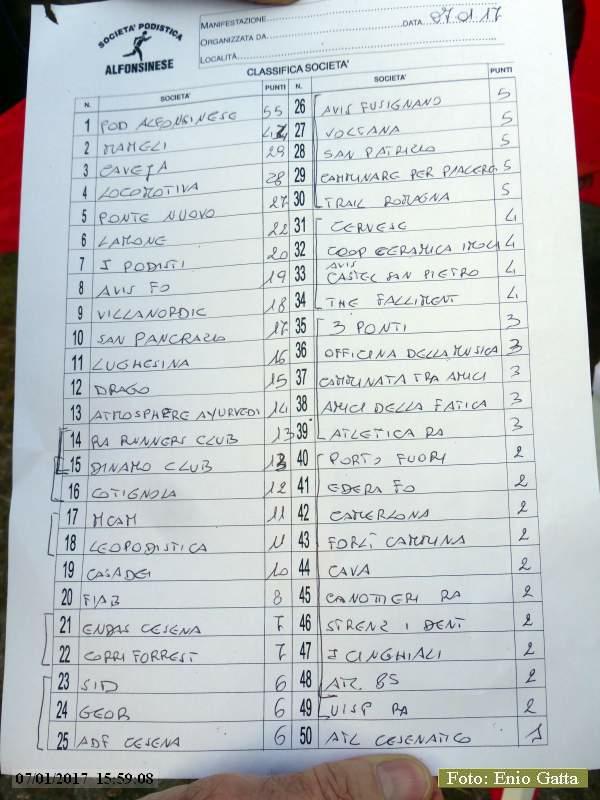 SOCIETA' PODISTICA
ALFONSINESE
MANIFESTAZIONE
DATA 07.01.17
ORGANIZZATA DA
LOCALITÀ
CLASSIFICA SOCIETA'
N. SOCIETA' PUNTI N. SOCIETA' PUNTI
1 POD ALFONSINESE 55 26 AVIS FUSIGNANO 5
2 MAMELI 27 VOLTANA 5
3 CAVEJA 29 28 SAN PATRIZIO 5
4 LOCOMOTIVA 28 29 CAMMINARE PER PIACERE 5
5 PONTE NUOVO 27 30 TRAIL ROMAGNA 5
6 LAMONE 22 31 CERVESE 4
7 I PODISTI 20 32 COOP CERAMICA IMOLA 4
8 AVIS FO 19 33 AVIS CASTEL SAN PIETRO 4
9 VILLANORDIC 18 34 THE FALLIMENT 4
10 SAN PANCRAZIO 17 35 3 PONTI 3
11 LUGHESINA 16 36 OFFICINA DELLA MUSICA 3
12 DRAGO 15 37 CAMMINATA TRA AMICI 3
13 ATMOSPHERE AYURVEDI 14 38 AMICI DELLA FATICA 3
14 RA RUNNERS CLUB 13 39 ATLETICA RA 3
15 DINAMO CLUB 13 40 PORTO FUORI 2
16 COTIGNOLA 12 41 EDERA FO 2
17 MCAM 11 42 CAMERLONA 2
18 LEOPODISTICA 11 43 FORLÌ CAMMINA 2
19 CASADEI 10 44 CAVA 2
20 FIAB 8 45 CANOTTIERI RA 2
21 ENDAS CESENA 7 46 STRENZ I DENT 2
22 CORRIFORREST 7 47 I CINGHIALI 2
23 SID 6 48 ATL 85 2
24 GEOB 6 49 UISP RA 2
25 ADF CESENA 6 50 ATL CESENATICO 1
07/01/2017 15:59:08
Foto: Enio Gatta